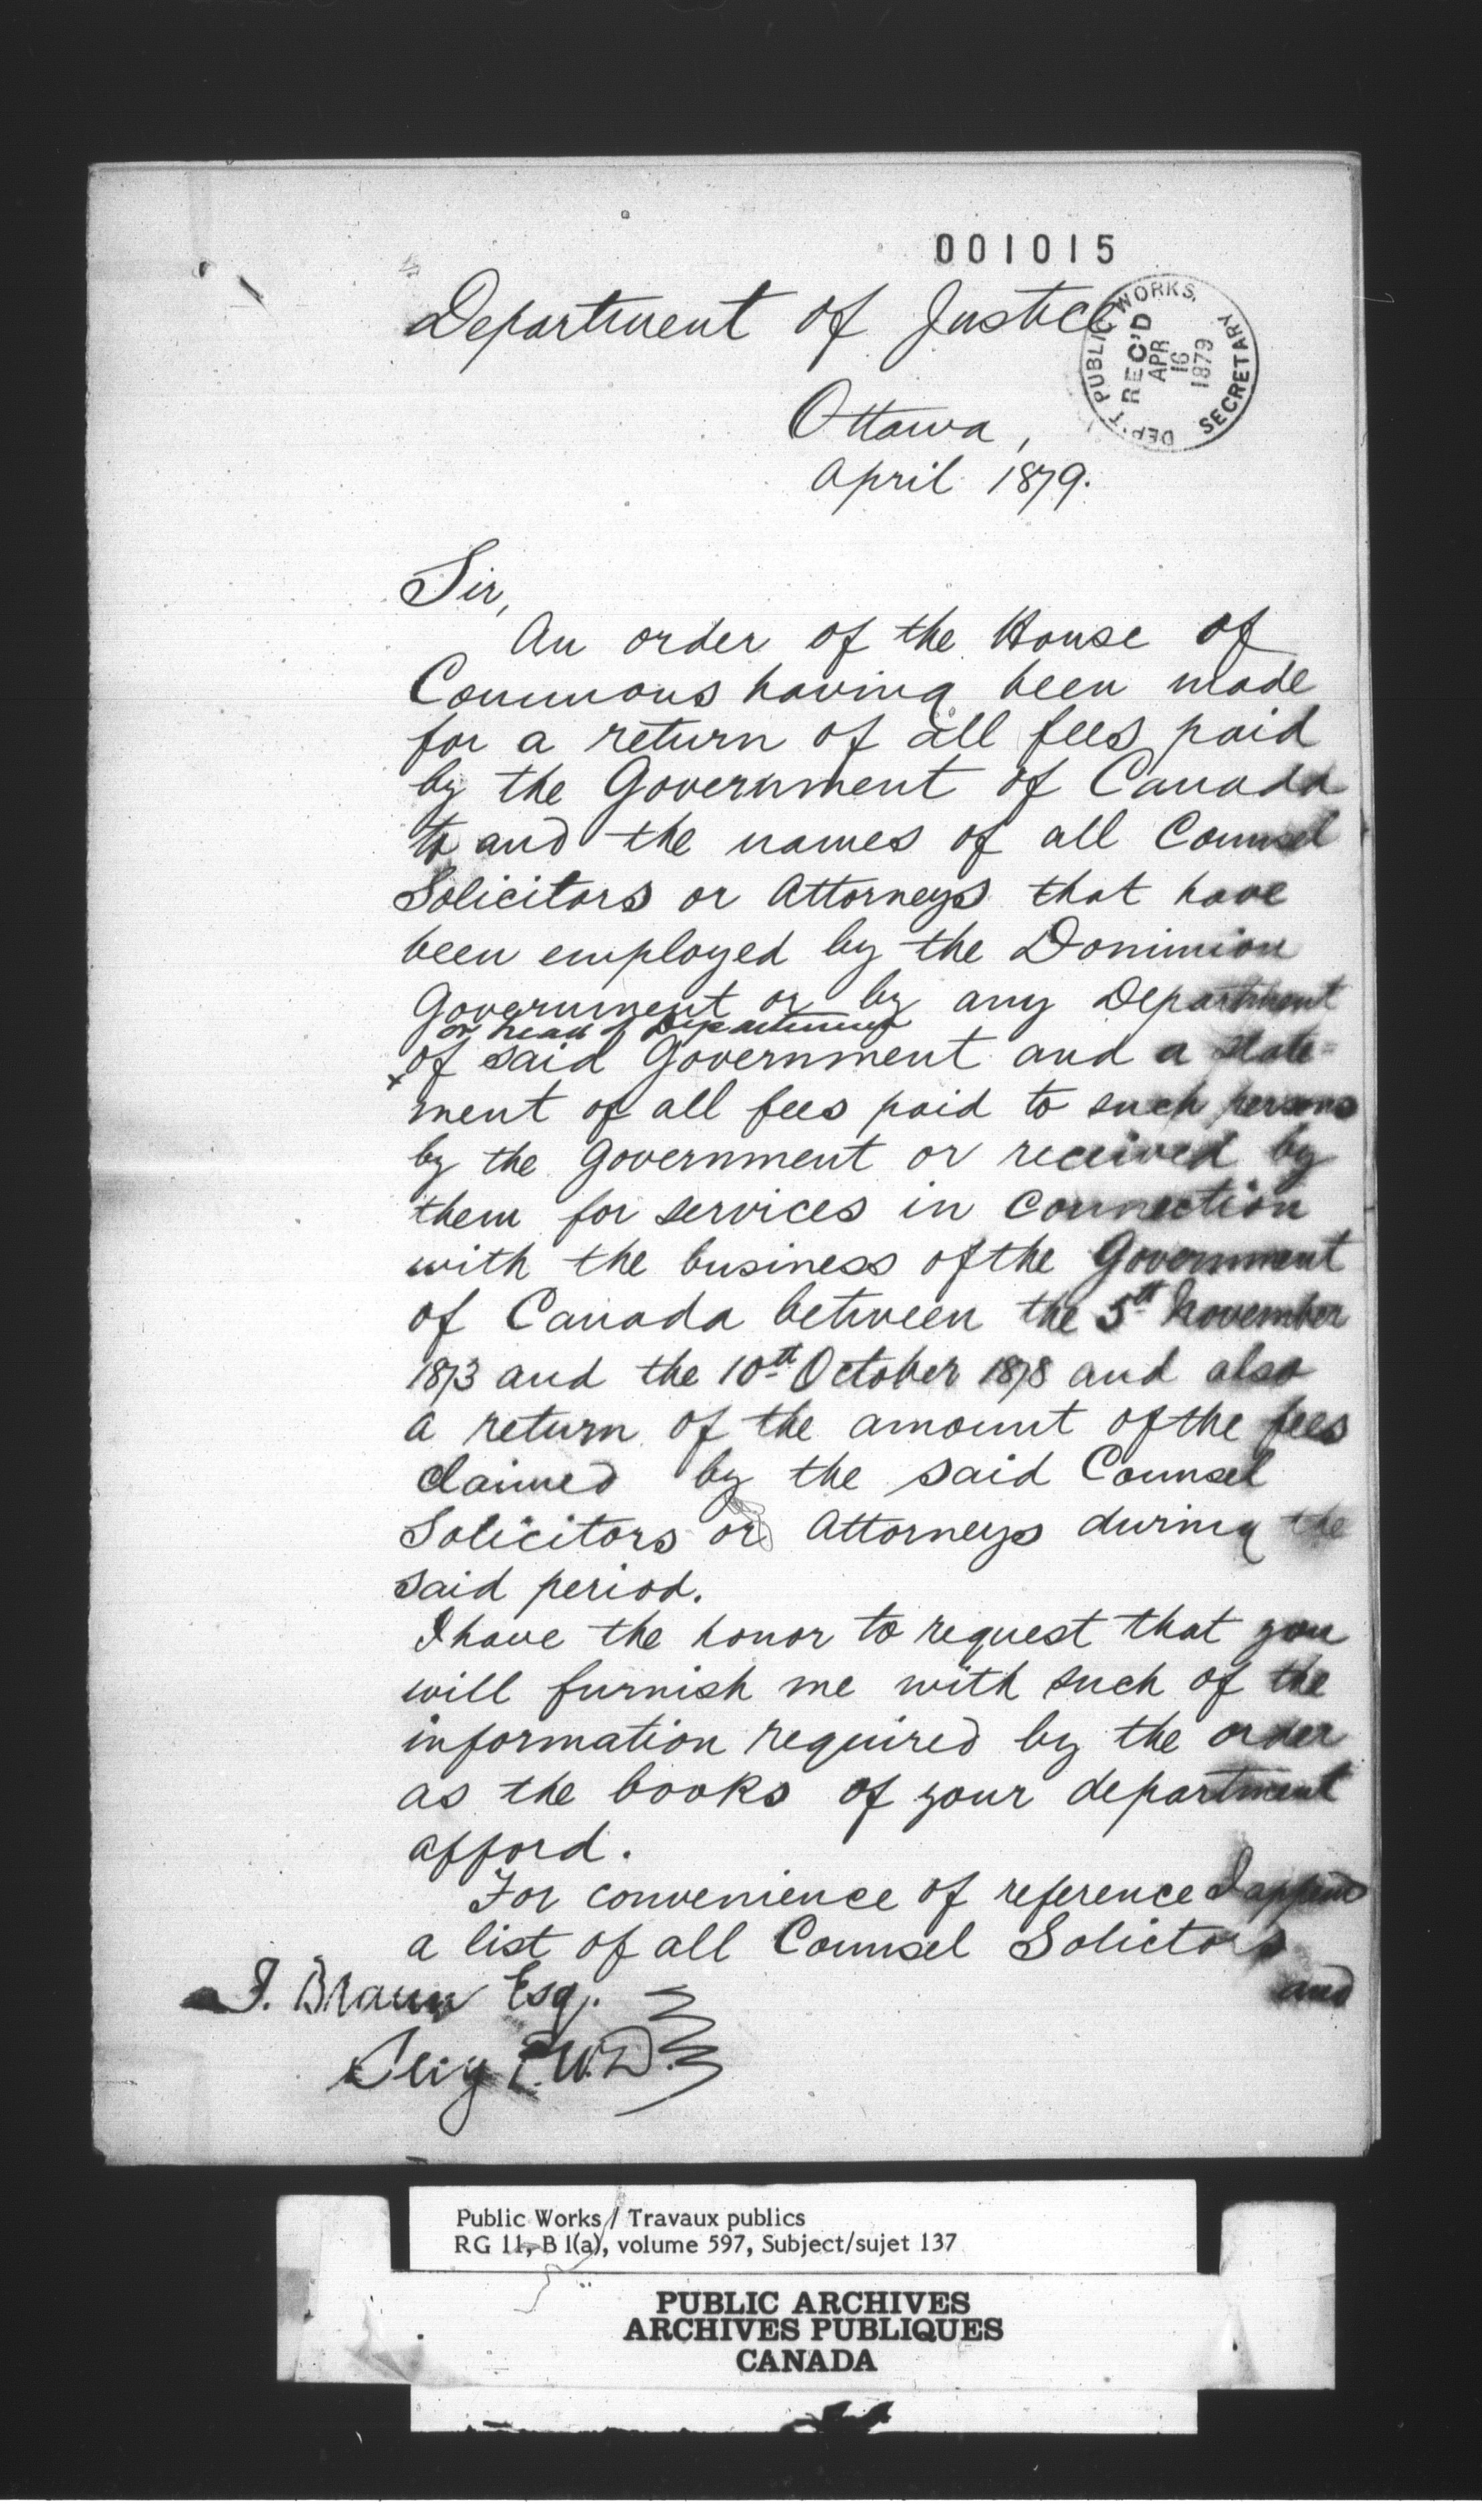 001015
Department of Justice
DEP'T PUBLIC WORKS,
REC'D
APR
16
1879
SECRETARY
Ottawa,
April 1879.
Sir,
An order of the House of
Commons having been made
for a return of all fees paid
by the Government of Canada
to and the names of all Counsel
Solicitors or Attorneys that have
been employed by the Dominion
Government or by any Department
or head of Department
of said Government and a state=
ment of all fees paid to such persons
by the Government or received by
them for services in connection
with the business of the Government
of Canada between the 5th November
1873 and the 10th October 1878 and also
a return of the amount of the fees
claimed by the said Counsel
Solicitors or Attorneys during the
said period.
I have the honor to request that you
will furnish me with such of the
information required by the order
as the books of your department
afford.
For convenience of reference I append
a list of all Counsel Solictors
and
F. Braun Esq.
P.W.D.
Public Works / Travaux publics
RG 11, B 1(a), volume 597, Subject/sujet 137
PUBLIC ARCHIVES
ARCHIVES PUBLIQUES
CANADA